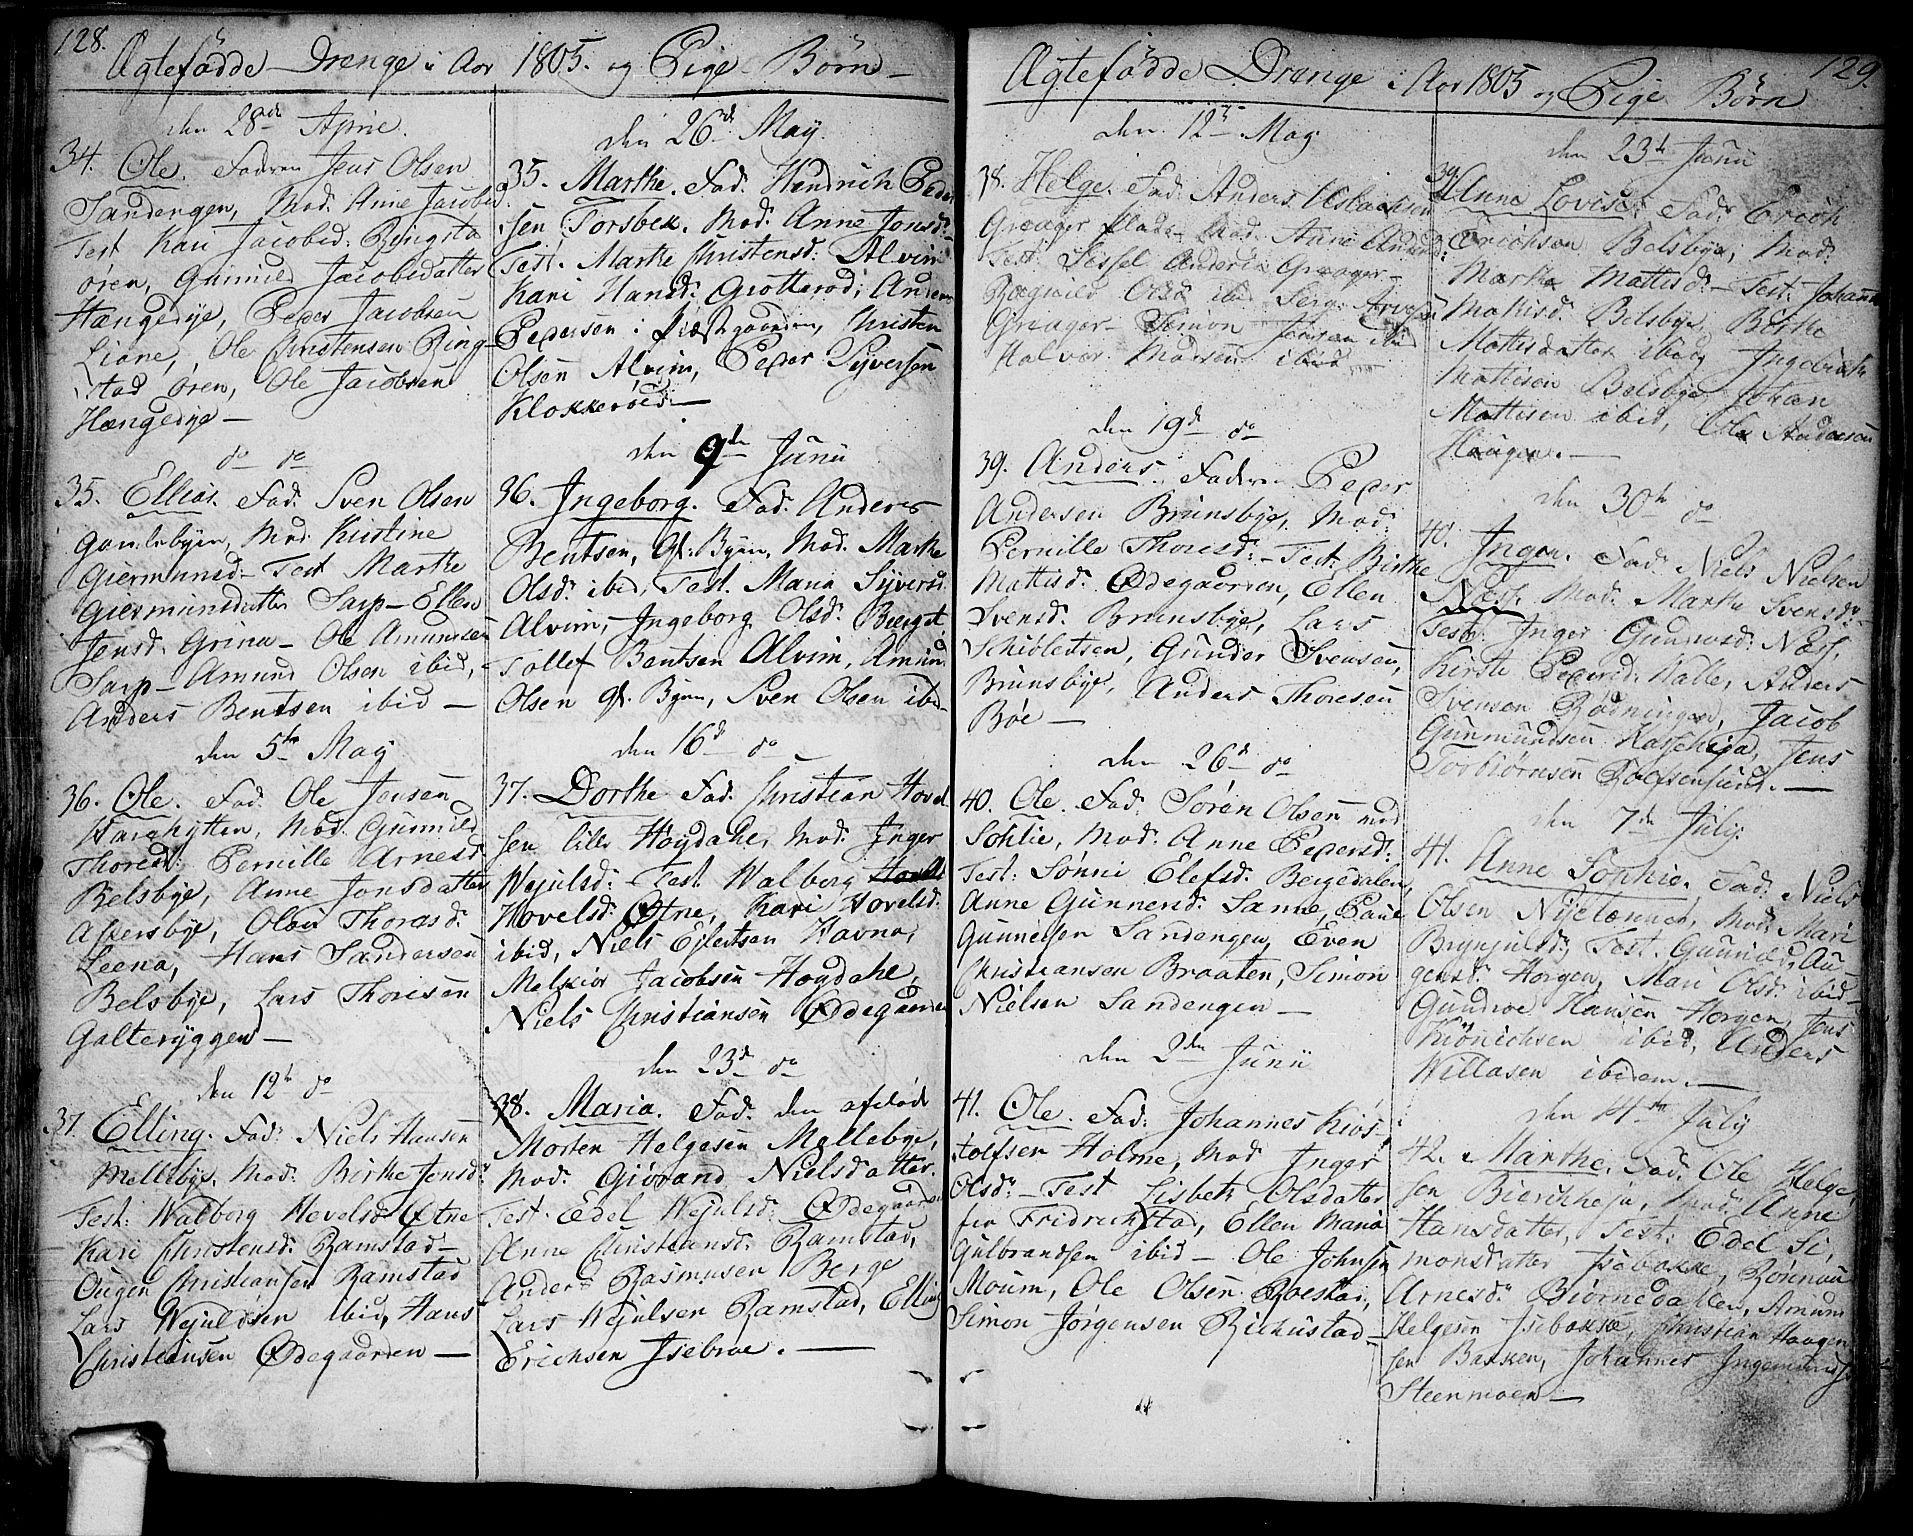 128.
Ægtefödde Drenge i Aar 1805. og Pige Börn
den 28de April
34. Ole. Fadren Jens Olsen
Sandengen, Mod. Anne Jacobsd.
Test Kari Jacobsd. Ringsta
ören, Gunnild Jacobsdatter
Hængedye, Peder Jacobsen
Liane, Ole Christensen Ring-
stad ören, Ole Jacobsen
Hængedye
do do
35. Ellias. Fad. Sven Olsen
Gamlebyen, Mod. Kristine
Giermunsd. Test Marthe
Giermunsdatter Sarp - Ellen
Jensd. Grina - Ole Amundsen
Sarp - Amund Olsen ibid,
Anders Bentsen ibid
den 5te May
36. Ole. Fad. Ole Jensen
Mod. Gunnild
Thoresd. Pernille Arnesd
Belsbye, Anne Jonsdatter
Alversbye, Olea Thorasd.
Leena, Hans Sandersen
Belsbye, Lars Thoresen
Galteryggen
den 12te do
37. Elling. Fad. Niels Hansen
Mellebye. Mod. Birthe Jensd.
Test: Walborg Hovelsd Ötne
Kari Christensd. Ramstad
Ougen Christiansen Ramstad
Lars Wejulsen ibid, Hans
Christiansen Ødegaarden
den 26de May
35. Marthe. Fad. Hendrich Peder
sen Torsbek. Mod. Anne Jonsd.
Test. Marthe Christensd: Alvim
Kari Hansd: Grotterød, Anders
Pedersen i Præstgaarden, Christen
Olsen Alvim, Peder Syversen
Klokkeröed
den 9de Junii
36. Ingeborg. Fad. Anders
Bentsen, Gl: Byen, Mod. Marthe
Olsd. ibid, Test. Maria Syversd
Alvim, Ingeborg Olsd. Berget,
Tollef Bentsen Alvim, Amun
Olsen gl. Byen, Sven Olsen ibid
den 16de do
37. Dorthe Fad. Christian Hovel
sen lille Høydahl, Mod. Inger
Wejulsd. Test Walborg
Hovelsd. Ötne, Kari Hovelsd.
ibid, Niels Ejlertsen Havna,
Melkior Jacobsen Høgdahl,
Niels Christiansen Ødegaarden
den 23de do
38. Maria. Fad. den afdöde
Morten Helgesen Mellebye,
Mod. Giörand Nielsdatter.
Test. Edel Wejulsd. Ødegaarden
Anne Christiansd. Ramstad,
Anders Rasmusen Berge
Lars Wejulsen Ramstad, Elling
Erichsen Isebroe.
129.
Ægtefödde Drenge i Aar 1805 og Pige Börn
den 12te May
38. Helge. Fad. Anders Aslachsen
Greager Mod. Anne
Test. Sessel Anders Greager
Ragnild Olsd ibid
Greager - Simon Jensen ibid
Halvor ibid
den 19de do
39. Anders. Fadren Peder
Andersen Brunsbye, Mod.
Pernille Thoresd: - Test: Birthe
Mattisd. Ødegaarden, Ellen
Svensd. Brunsbye, Lars
Schiöletsen, Gunder Svensen,
Brunsbye, Anders Thoresen
Böe
den 26de do
40. Ole. Fad. Sören Olsen
Sohlie, Mod. Anne Pedersd:
Test: Sønni Elefsd. Bergedalen,
Anne Gunnersd. Sanne, Paul
Gunnelsen Sandengen, Even
Christiansen Braaten, Simon
Nielsen Sandengen
den 2den Junii
41. Ole. Fad. Johannes Kiös-
tolfsen Holme, Mod Inger
Olsd. - Test Lisbeth Olsdatter
fra Fridrichstad, Ellen Maria
Gulbrandsen ibid - Ole Johnsen
Moum, Ole Olsen
Simon Jørgensen
den 23de Junii
39. Anne Lovise. Fad. Erich
Erichsen Belsbye, Mod:
Marthe Mattisd. - Test. Johanne
Mattisd. Belsbye, Birthe
Mattisdatter ibid, Ingebreth
Mattisen Belsbye, Johan
Mattisen ibid, Ole Andersen
Haugen.
den 30te do
40. Inger. Fad. Niels Nielsen
Næss. Mod. Marthe Svensd.
Test. Inger Gunnersd. Næss,
Kirsti Pedersd. Walle, Anders
Svensen Rödningen, Jacob
Gunmundsen Jens
Torbiörnsen
den 7de July
41. Anne Sophie. Fad. Niels
Olsen Mod. Mari
Brynjulsd. Test. Gunnild Au
gensd. Horgen, Mari Olsd. ibid
Gundroe Hansen Horgen, Jens
Könichsen ibid, Anders
Willasen ibidem.
den 14de July
42. Marthe. Fad. Ole Helge
sen Mod. Anne
Hansdatter, Test. Edel Si,
monsdatter Isebakke,
Arnesd. Biörnedallen, Amund
Helgesen Isebakke, Christian Haagen
sen Bakken, Johannes Ingemunds
Steenmoen